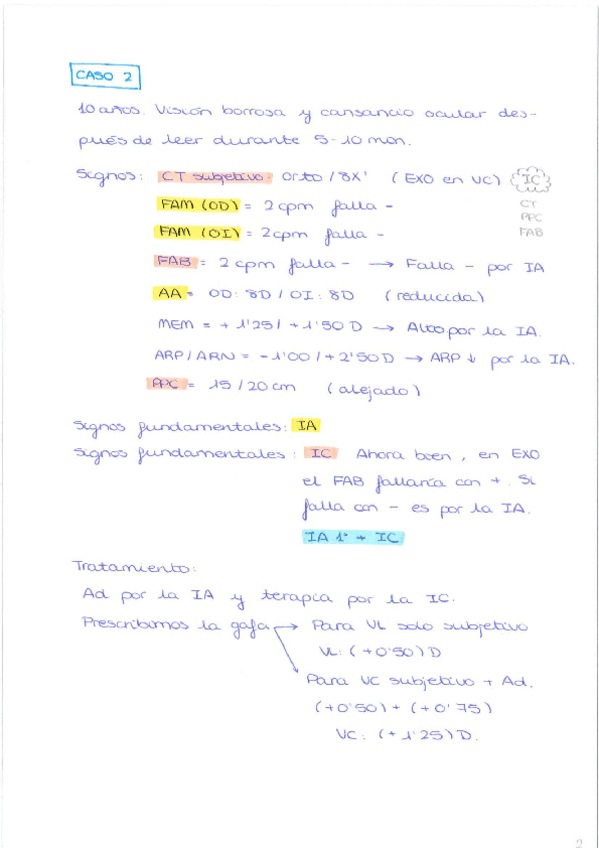 CASO 2
10 años. Visión borrosa y cansancio ocular des-
pués de leer durante 5-10 min.
Signos: CT subjetivo: orto / 8X' (EXO en VC) IC
CT
PPC
FAB
FAM (OD) = 2 cpm falla -
FAM (OI) = 2 cpm falla -
FAB = 2 cpm falla - → Falla - por IA
AA = OD: 8D / OI: 8D (reducida)
MEM = + 1'25 / + 1'50 D → Alto por la IA.
ARP / ARN = - 1'00 / + 2'50 D → ARP ↓ por la IA.
PPC = 15 / 20 cm (alejado)
Signos fundamentales: IA
Signos fundamentales: IC Ahora bien, en EXO
el FAB fallaría con +. Si
falla con - es por la IA.
IA 1ª + IC
Tratamiento:
Ad por la IA y terapia por la IC.
Prescribimos la gafa → Para VL solo subjetivo
VL: (+0'50) D
Para VC subjetivo + Ad.
(+0'50) + (+0'75)
VC: (+1'25) D.
2